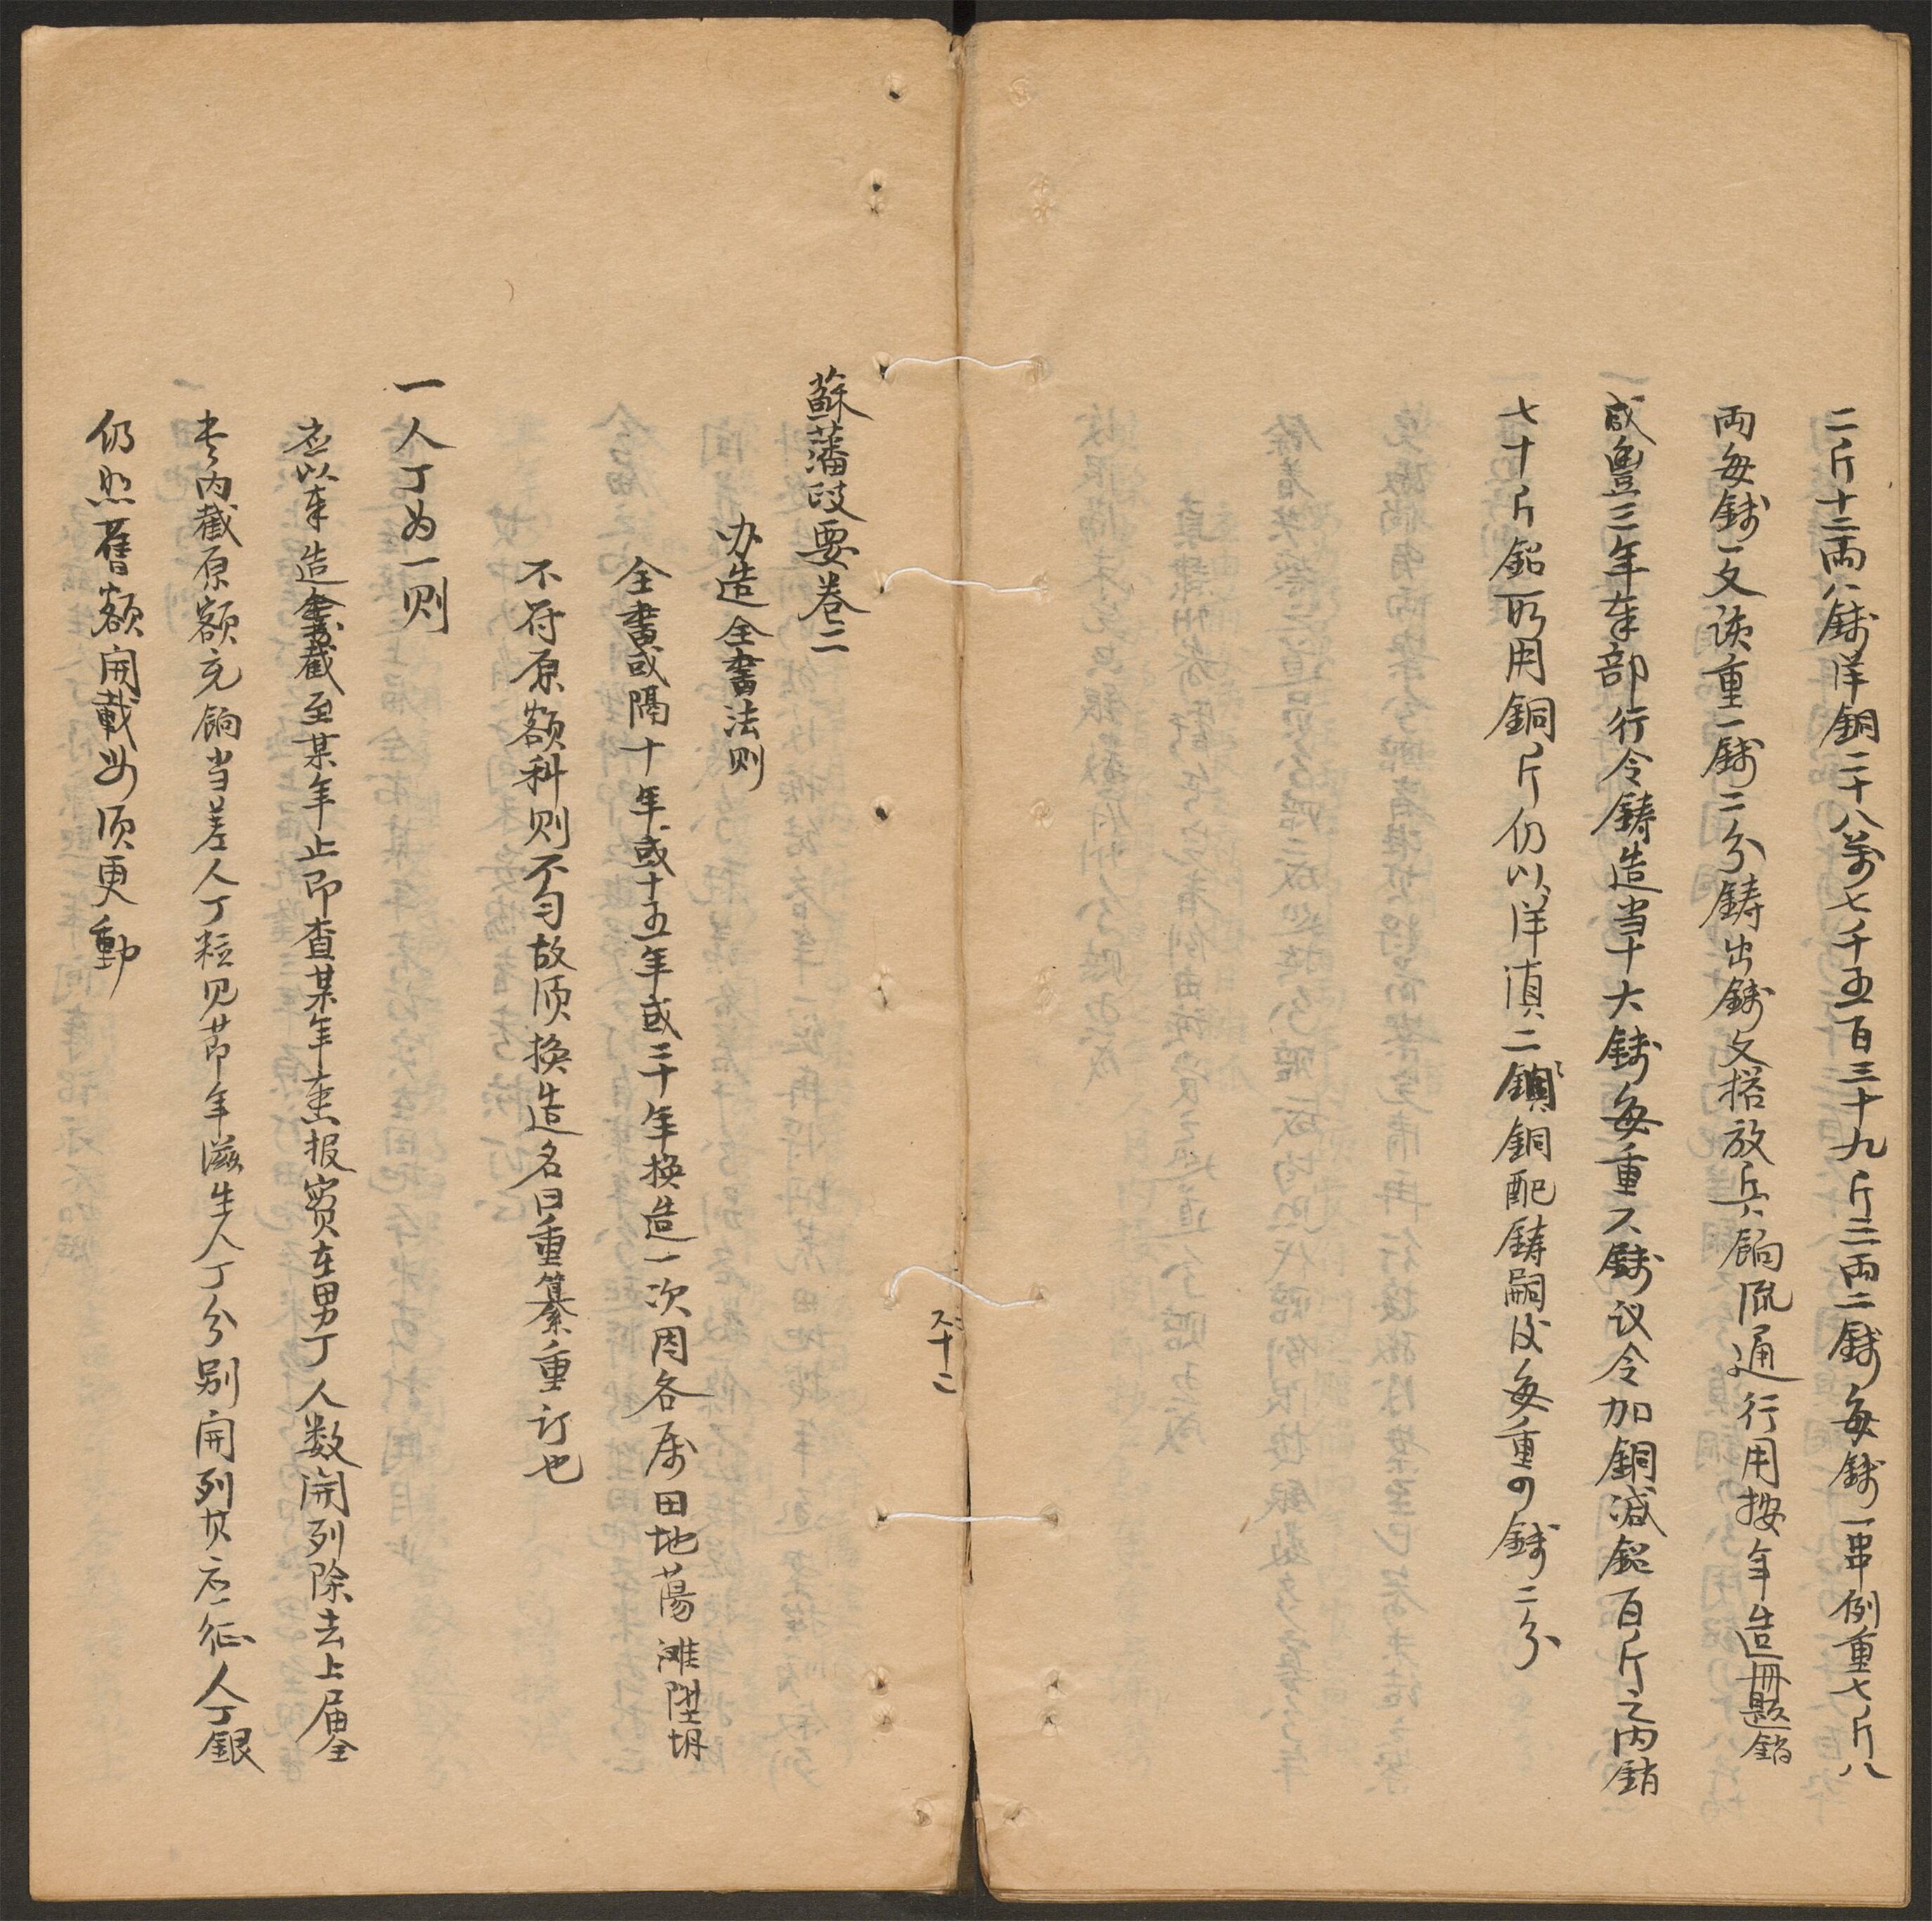 二斤十二兩八錢洋銅二十八萬七千五百三十九斤三兩二錢每錢一串例重七斤八
兩每錢一文該重一錢二分鑄出錢文搭放兵餉流通行用按年造冊題銷
一咸豐三年奉部行令鑄造当十大錢每重六錢议令加銅減鉛百斤之內銷
七十斤鉛所用銅斤仍以洋滇二銅配鑄嗣後每重四錢二分
蘇藩政要卷二
办造全書法则
全書或隔十年或十五年或三十年換造一次因各属田地蕩滩陞坍
不符原额科则不匀故须換造名曰重纂重订也
一人丁为一则
应以奉造截至某年止即查某年彙报实在男丁人数開列除去上届全
书内截原额充餉当差人丁粒见节年滋生人丁分别開列其应征人丁銀
仍照舊额開載毋须更動
六十二